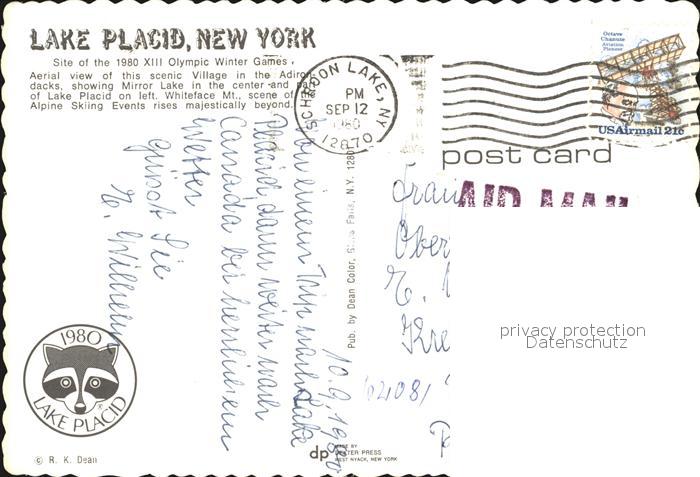 LAKE PLACID, NEW YORK
Site of the 1980 XIII Olympic Winter Games.
Aerial view of this scenic Village in the Adiron-
dacks, showing Mirror Lake in the center and
of Lake Placid on left. Whiteface Mt., scene of
Alpine Skiing Events rises majestically beyond.
SCHROON LAKE, NY
PM
SEP 12
1980
12870
Octave
Chanute
Aviation
Pioneer
USAirmail 21c
post card
AIR MAIL
10.9.1980
Von einem Trip nach Lake
Placid dann weiter nach
Canada bei herrlichem
Wetter
grüßt Sie
E. Wilhelm
Pub. by Dean Color, Glens Falls, N.Y. 12801
Frau
Ober
E.
Kre
privacy protection
Datenschutz
1980
LAKE PLACID
®
© R. K. Dean
dp
MADE BY
DEXTER PRESS
WEST NYACK, NEW YORK